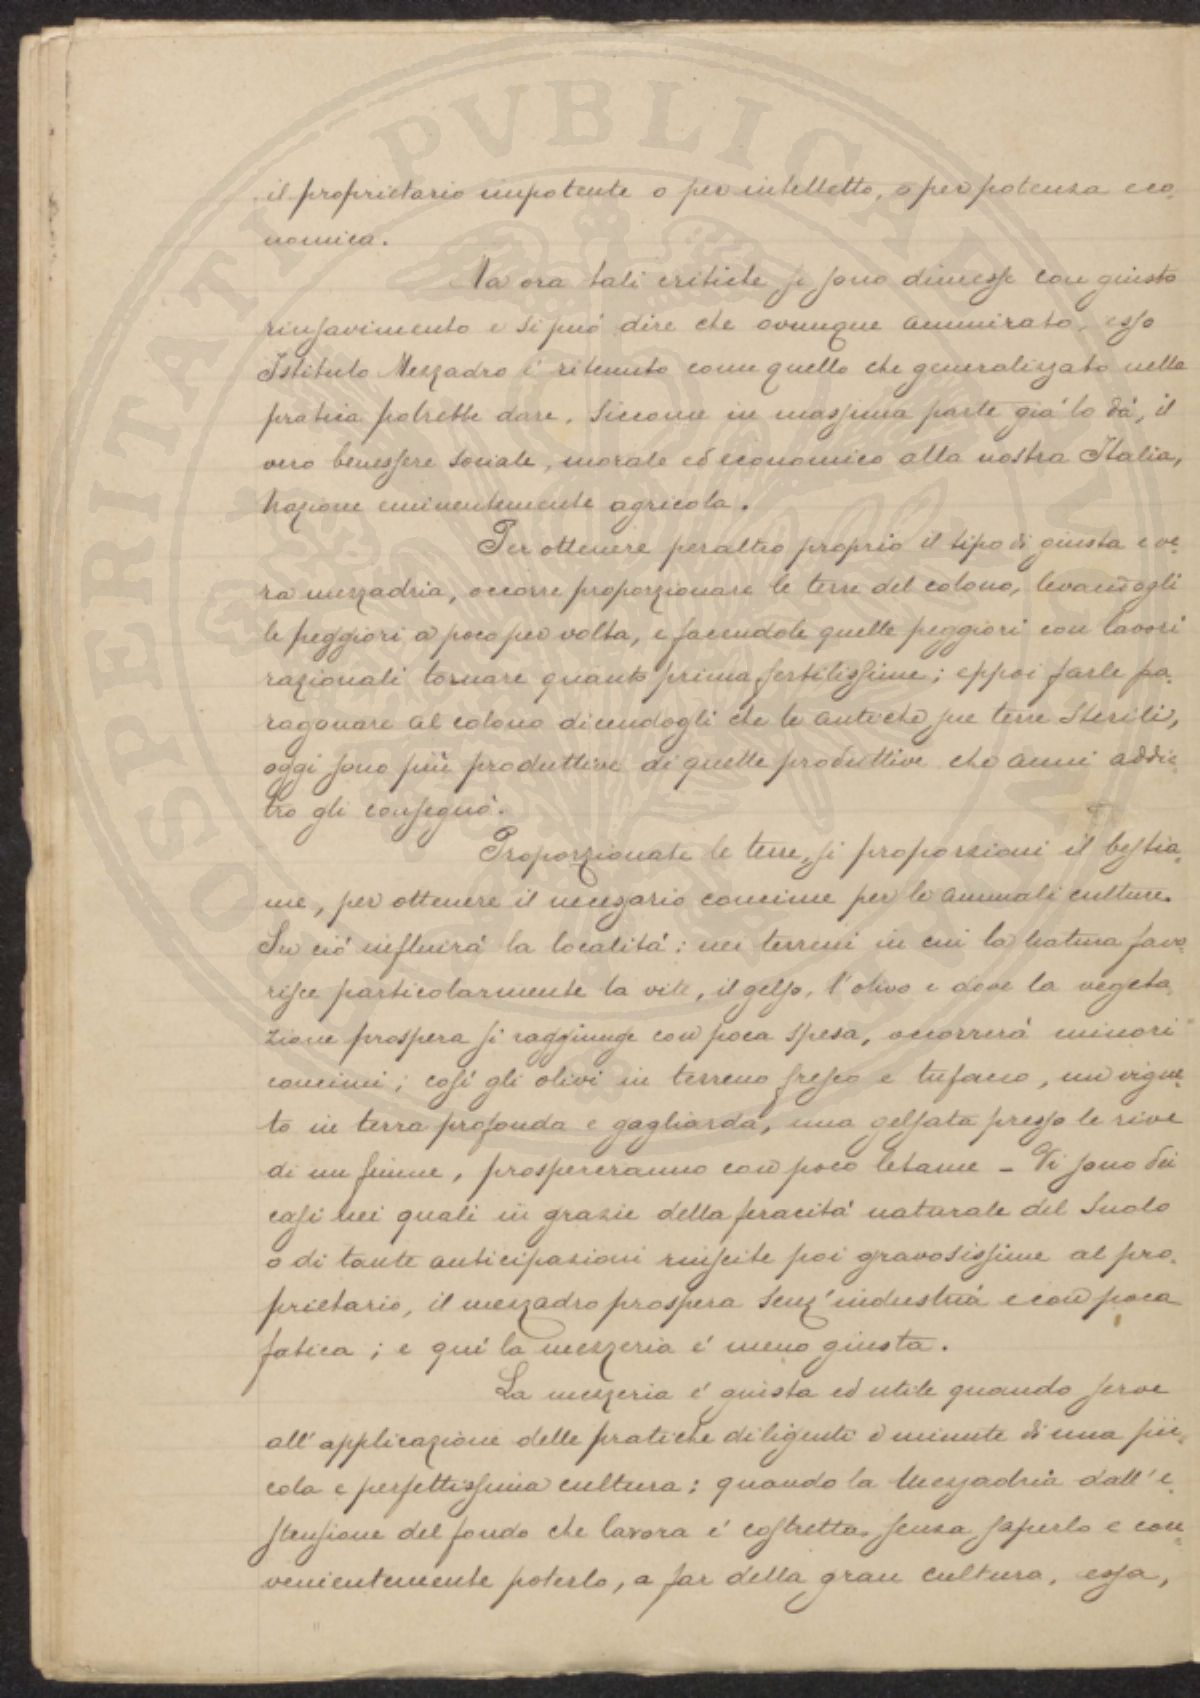 PROSPERITATI PVBLICAE AVGENDAE
il proprietario impotente o per intelletto, o per potenza eco-
nomica.
Ma ora tali critiche si sono dimesse con giusto
rinsavimento e si può dire che ovunque ammirato, esso
Istituto Mezzadro è ritenuto come quello che generalizzato nella
pratica potrebbe dare, siccome in massima parte già lo dà, il
vero benessere sociale, morale ed economico alla nostra Italia,
Nazione eminentemente agricola.
Per ottenere peraltro proprio il tipo di giusta e ve-
ra mezzadria, occorre proporzionare le terre del colono, levandogli
le peggiori a poco per volta, e facendole quelle peggiori con lavori
razionali tornare quanto prima fertilissime; eppoi farle pa-
ragonare al colono dicendogli che le antiche sue terre sterili,
oggi sono più produttive di quelle produttive che anni addie-
tro gli consegnò.
Proporzionate le terre, si proporzioni il bestia-
me, per ottenere il necessario concime per le annuali culture.
Su ciò influirà la località: nei terreni in cui la natura favo-
risce particolarmente la vite, il gelso, l'olivo e dove la vegeta-
zione prospera si raggiunge con poca spesa, occorrerà minori
concimi; così gli olivi in terreno fresco e tufaceo, un vigne-
to in terra profonda e gagliarda, una gelsata presso le rive
di un fiume, prospereranno con poco letame - Vi sono dei
casi nei quali in grazie della feracità naturale del suolo
o di tante anticipazioni riuscite poi gravosissime al pro-
prietario, il mezzadro prospera senz'industria e con poca
fatica; e qui la mezzeria è meno giusta.
La mezzeria è giusta ed utile quando serve
all'applicazione delle pratiche diligenti e minute di una pic-
cola e perfettissima cultura: quando la Mezzadria dall'e-
stensione del fondo che lavora è costretta, senza saperlo e con-
venientemente poterlo, a far della gran cultura, essa,